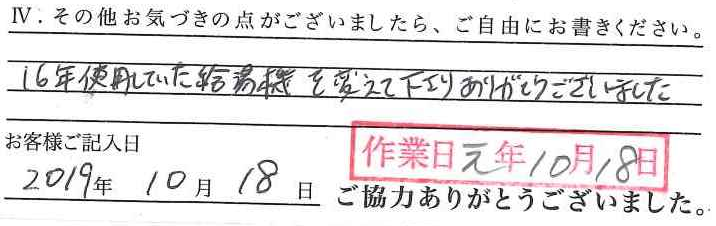 Ⅳ．その他お気づきの点がございましたら、ご自由にお書きください。
16年使用していた給湯機を変えて下さりありがとうございました
お客様ご記入日
作業日元年10月18日
2019年 10月 18日
ご協力ありがとうございました。